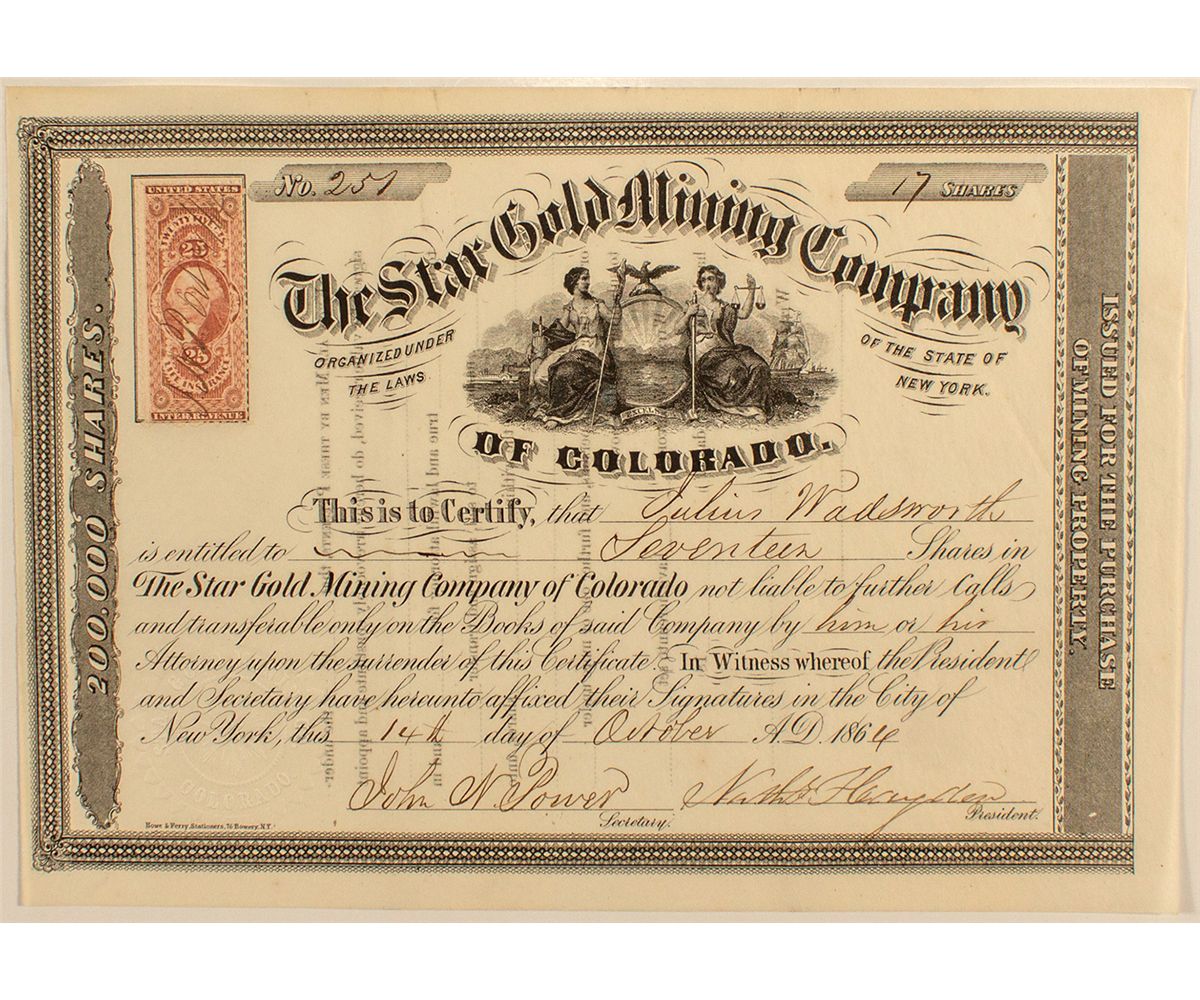 No. 251
17 SHARES
UNITED STATES
TWENTY FIVE C.
25
25
LIFE INSURANCE
INTER. REVENUE
The Star Gold Mining Company
ORGANIZED UNDER
THE LAWS
OF THE STATE OF
NEW YORK.
EXCELSIOR
OF COLORADO.
200.000 SHARES.
ISSUED FOR THE PURCHASE
OF MINING PROPERTY.
This is to Certify, that Julius Wadsworth
is entitled to Seventeen Shares in
The Star Gold Mining Company of Colorado not liable to further Calls
and transferable only on the Books of said Company by him or his
Attorney upon the surrender of this Certificate. In Witness whereof the President
and Secretary have hereunto affixed their Signatures in the City of
New York, this 14th day of October A.D. 1864
COLORADO
John N. Power
Secretary.
President.
Howe & Ferry, Stationers, 76 Bowery, N.Y.